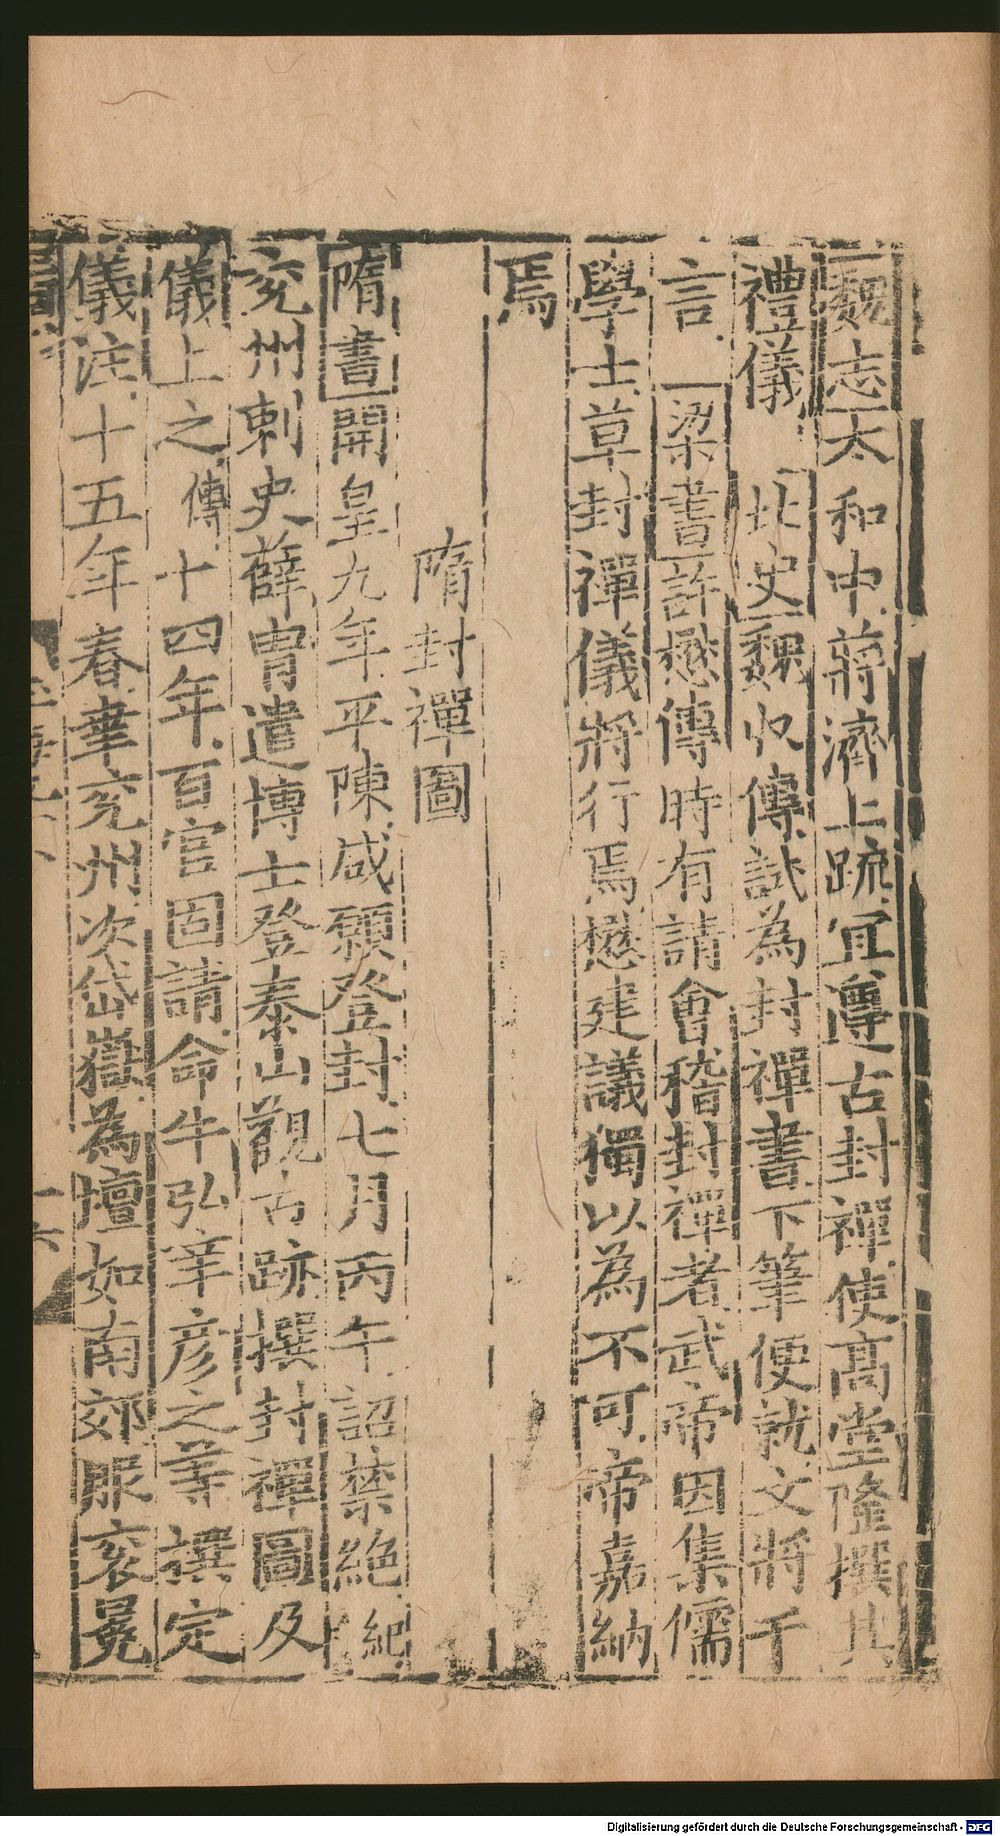 魏志太和中蔣濟上疏宜遵古封禪使高堂隆撰其
禮儀 北史魏收傳詔為封禪書下筆便就文將千
言 梁書許懋傳時有請會稽封禪者武帝因集儒
學士草封禪儀將行焉懋建議獨以為不可帝嘉納
焉
隋封禪圖
隋書開皇九年平陳咸願登封七月丙午詔禁絕紀
兗州刺史薛胄遣博士登泰山觀古跡撰封禪圖及
儀上之傳十四年百官固請命牛弘辛彥之等撰定
儀注十五年春幸兗州次岱嶽為壇如南郊服袞冕
Digitalisierung gefördert durch die Deutsche Forschungsgemeinschaft - DFG